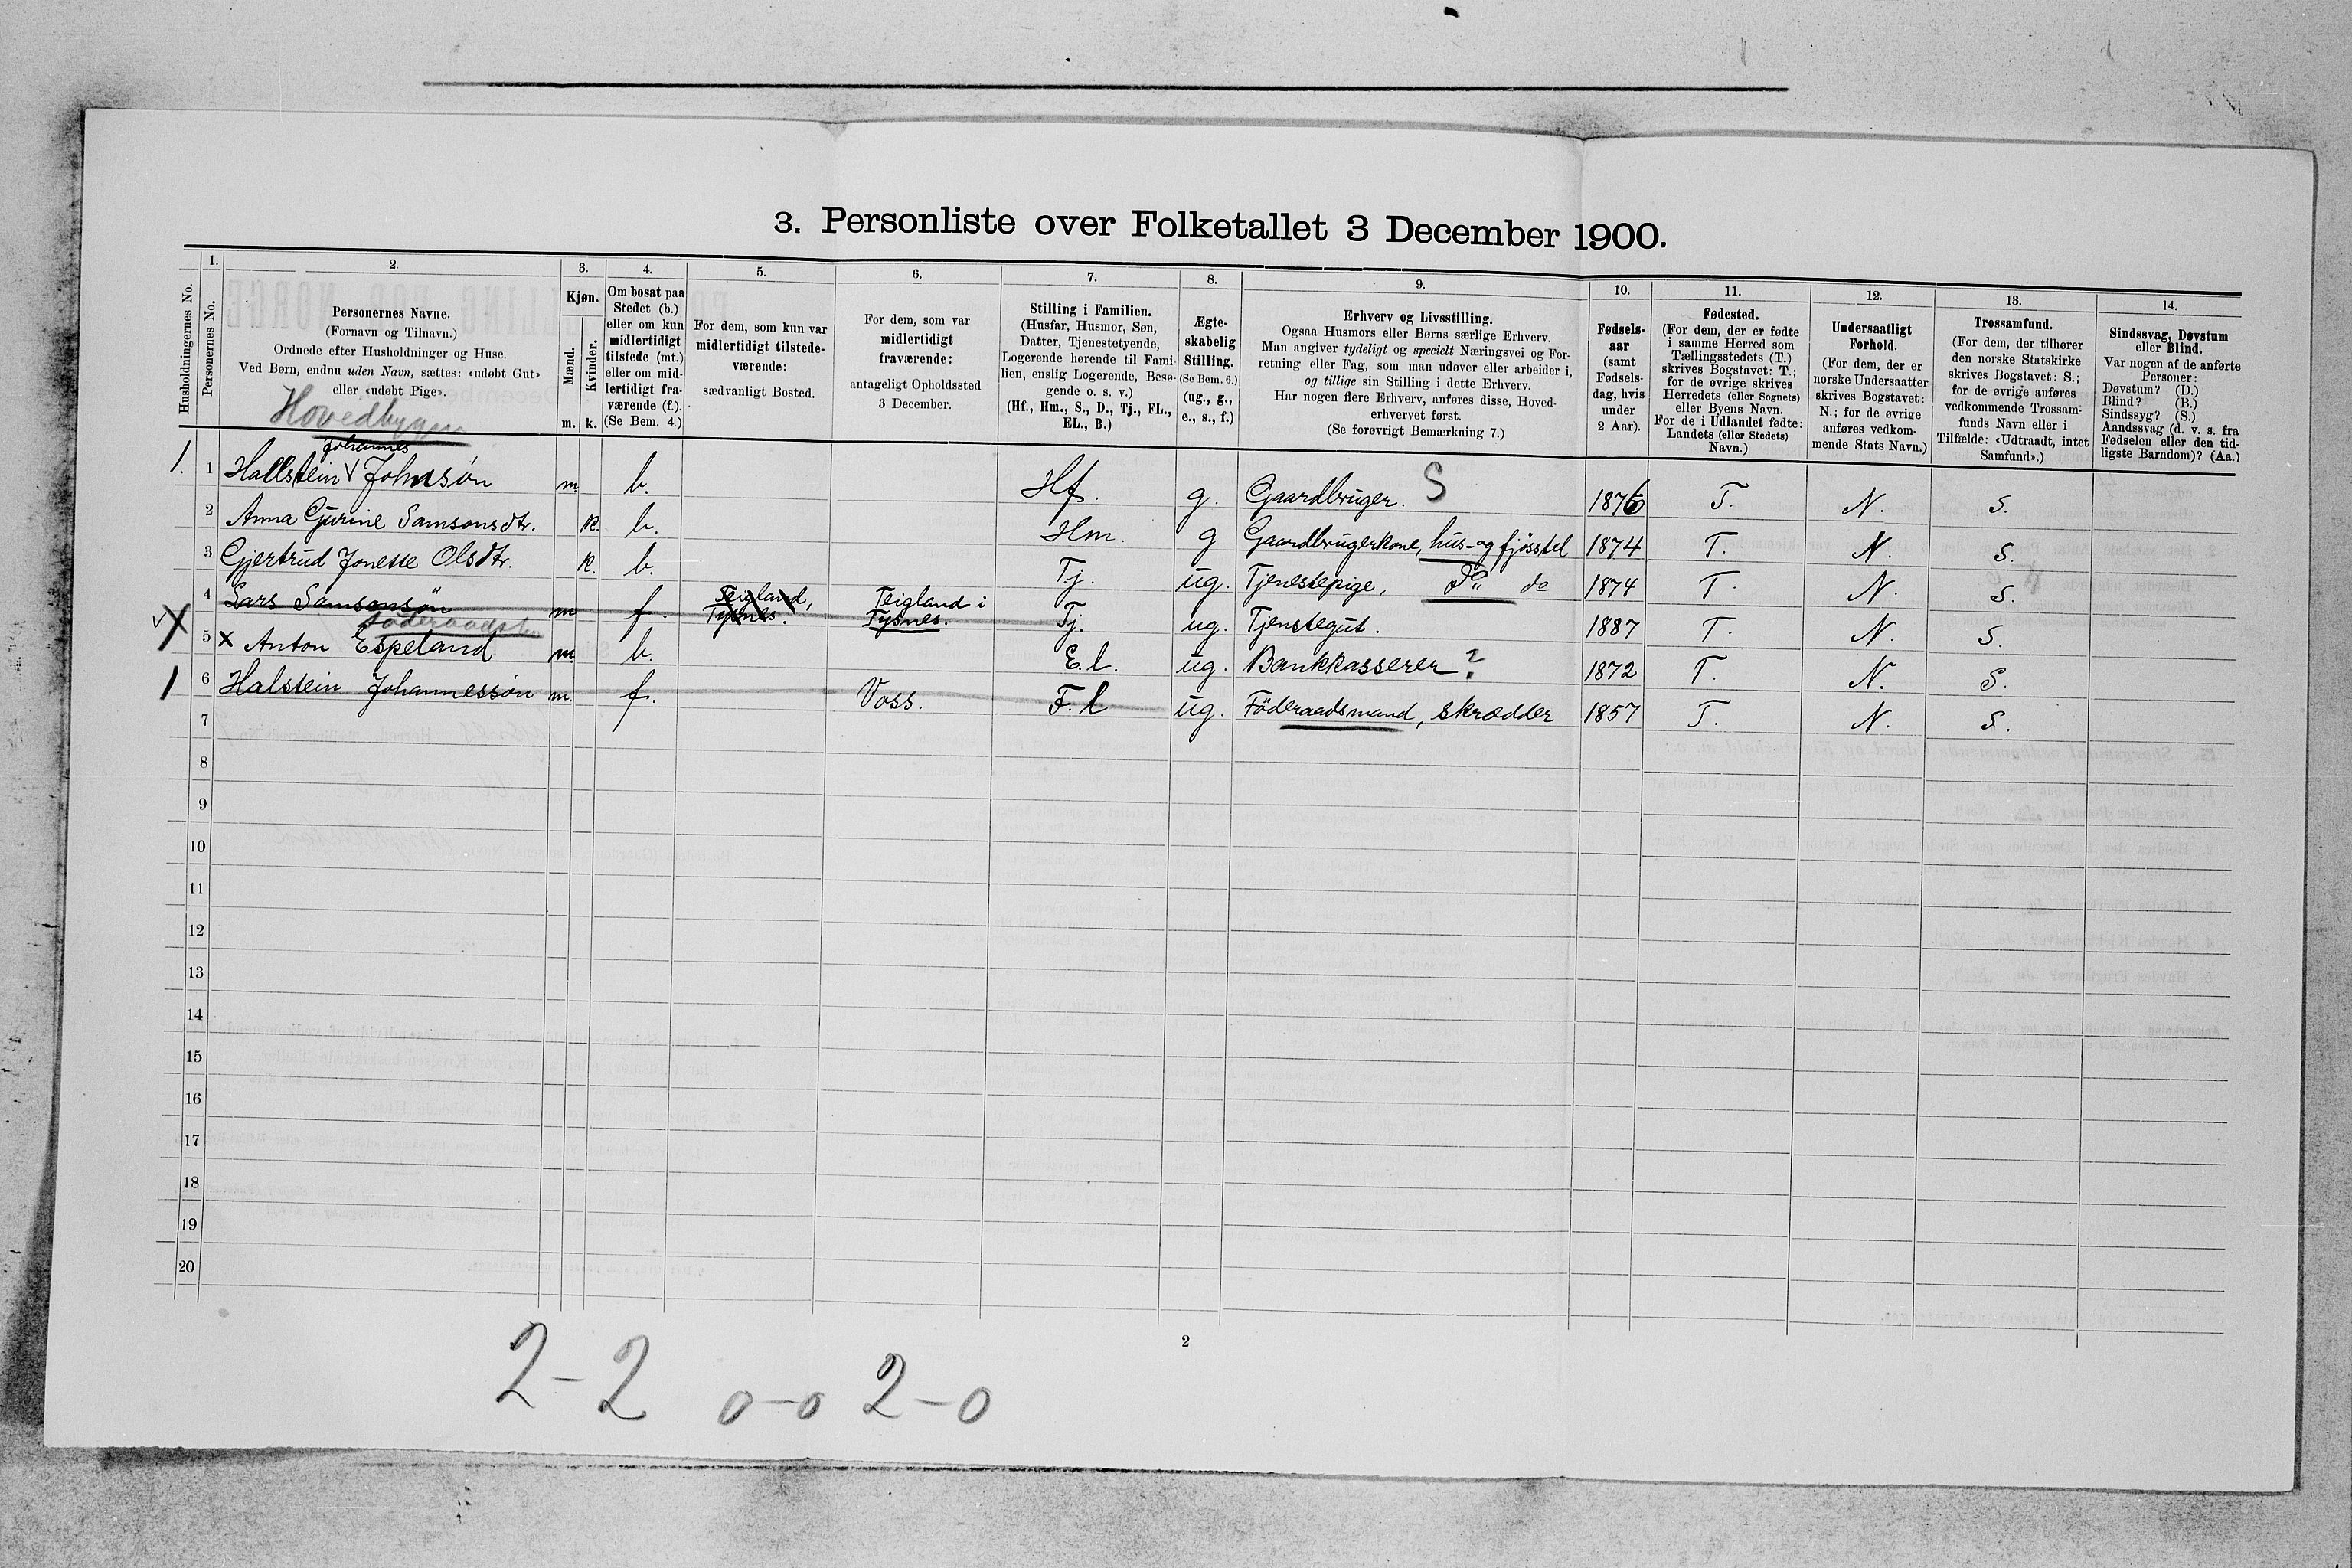 3. Personliste over Folketallet 3 December 1900.
1. 2. 3. 4. 5. 6. 7. 8. 9. 10. 11. 12. 13. 14.
Husholdningernes No.
Personernes No.
Personernes Navne.
(Fornavn og Tilnavn.)
Ordnede efter Husholdninger og Huse.
Ved Børn, endnu uden Navn, sættes: «udøbt Gut»
eller «udøbt Pige».
Kjøn.
Mænd.
Kvinder.
m. k.
Om bosat paa
Stedet (b.)
eller om kun
midlertidigt
tilstede (mt.)
eller om mid-
lertidigt fra-
værende (f.).
(Se Bem. 4.)
For dem, som kun var
midlertidigt tilstede-
værende:
sædvanligt Bosted.
For dem, som var
midlertidigt
fraværende:
antageligt Opholdssted
3 December.
Stilling i Familien.
(Husfar, Husmor, Søn,
Datter, Tjenestetyende,
Logerende hørende til Fami-
lien, enslig Logerende, Besø-
gende o. s. v.)
(Hf., Hm., S., D., Tj., FL.,
EL., B.)
Ægte-
skabelig
Stilling.
(Se Bem. 6.)
(ug., g.,
e., s., f.)
Erhverv og Livsstilling.
Ogsaa Husmors eller Børns særlige Erhverv.
Man angiver tydeligt og specielt Næringsvei og For-
retning eller Fag, som man udøver eller arbeider i,
og tillige sin Stilling i dette Erhverv.
Har nogen flere Erhverv, anføres disse, Hoved-
erhvervet først.
(Se forøvrigt Bemærkning 7.)
Fødsels-
aar
(samt
Fødsels-
dag, hvis
under
2 Aar).
Fødested.
(For dem, der er fødte
i samme Herred som
Tællingsstedets (T.)
skrives Bogstavet: T.;
for de øvrige skrives
Herredets (eller Sognets)
eller Byens Navn.
For de i Udlandet fødte:
Landets (eller Stedets)
Navn.)
Undersaatligt
Forhold.
(For dem, der er
norske Undersaatter
skrives Bogstavet:
N.; for de øvrige
anføres vedkom-
mende Stats Navn.)
Trossamfund.
(For dem, der tilhører
den norske Statskirke
skrives Bogstavet: S.;
for de øvrige anføres
vedkommende Trossam-
funds Navn eller i
Tilfælde: «Udtraadt, intet
Samfund».)
Sindssvag, Døvstum
eller Blind.
Var nogen af de anførte
Personer:
Døvstum? (D.)
Blind? (B.)
Sindssyg? (S.)
Aandssvag (d. v. s. fra
Fødselen eller den tid-
ligste Barndom)? (Aa.)
Hovedbygn
Johannes
1. 1 Hallstein V Johnsön m b. Hf. g. Gaardbruger. S 1876 T. N. S.
2 Anna Gurine Samsonsdtr. k. b. Hm. g Gaardbrugerkone, hus- og fjösstel 1874 T. N. S.
3 Gjertrud Jonette Olsdtr. k. b. Tj. ug. Tjenestepige, do do 1874 T. N. S.
4 Lars Samsonsön m f. Teigland, Tysnes. Teigland i Tysnes. Tj. ug. Tjenstegut. 1887 T. N. S.
Föderaadst
X 5 x Anton Espeland m b. E.l. ug. Bankkasserer ? 1872 T. N. S.
1 6 Halstein Johannessön m. f. Voss. F.l ug. Föderaadsmand, skrædder 1857 T. N. S.
7
8
9
10
11
12
13
14
15
16
17
18
19
20
2
2-2 0-0 2-0